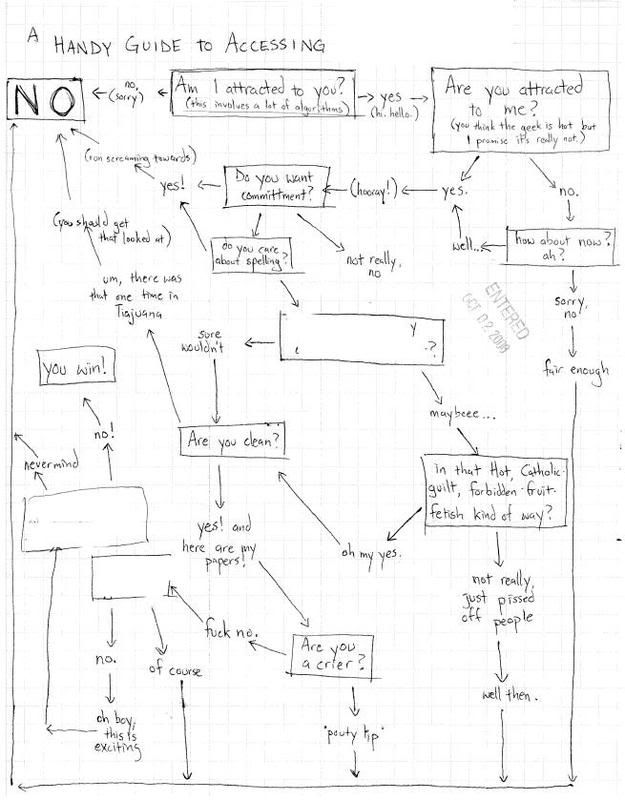 A HANDY GUIDE TO ACCESSING
NO
no,
(sorry)
Am I attracted to you?
(this involves a lot of algorithms)
yes
(hi. hello.)
Are you attracted
to me?
(you think the geek is hot but
I promise it's really not.)
(run screaming towards)
yes!
Do you want
committment?
(hooray!)
yes.
no.
(you should get
that looked at)
do you care
about spelling?
not really,
no
well...
how about now?
ah?
um, there was
that one time in
Tiajuana
ENTERED
OCT 02 2008
sorry,
no
sure
wouldn't
y
?
fair enough
you win!
maybeee...
no!
Are you clean?
nevermind
in that Hot, Catholic-
guilt, forbidden-fruit-
fetish kind of way?
yes! and
here are my
papers!
oh my yes.
not really,
just pissed
off people
fuck no.
Are you
a crier?
no.
of course
well then.
oh boy,
this is
exciting
*pouty lip*